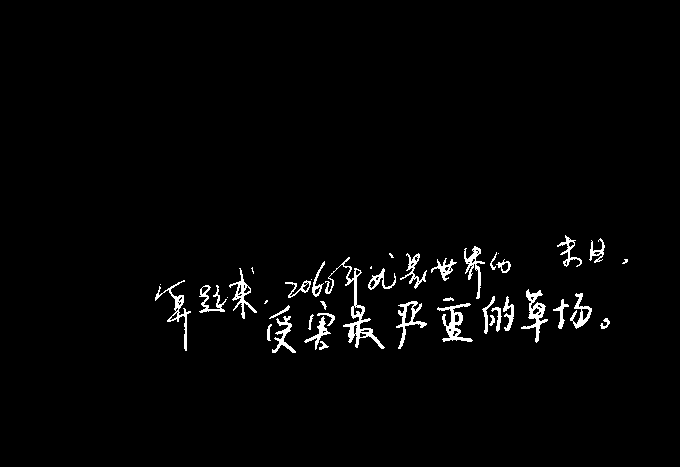 算起来,2060年就是世界的 末日.
受害最严重的草场。